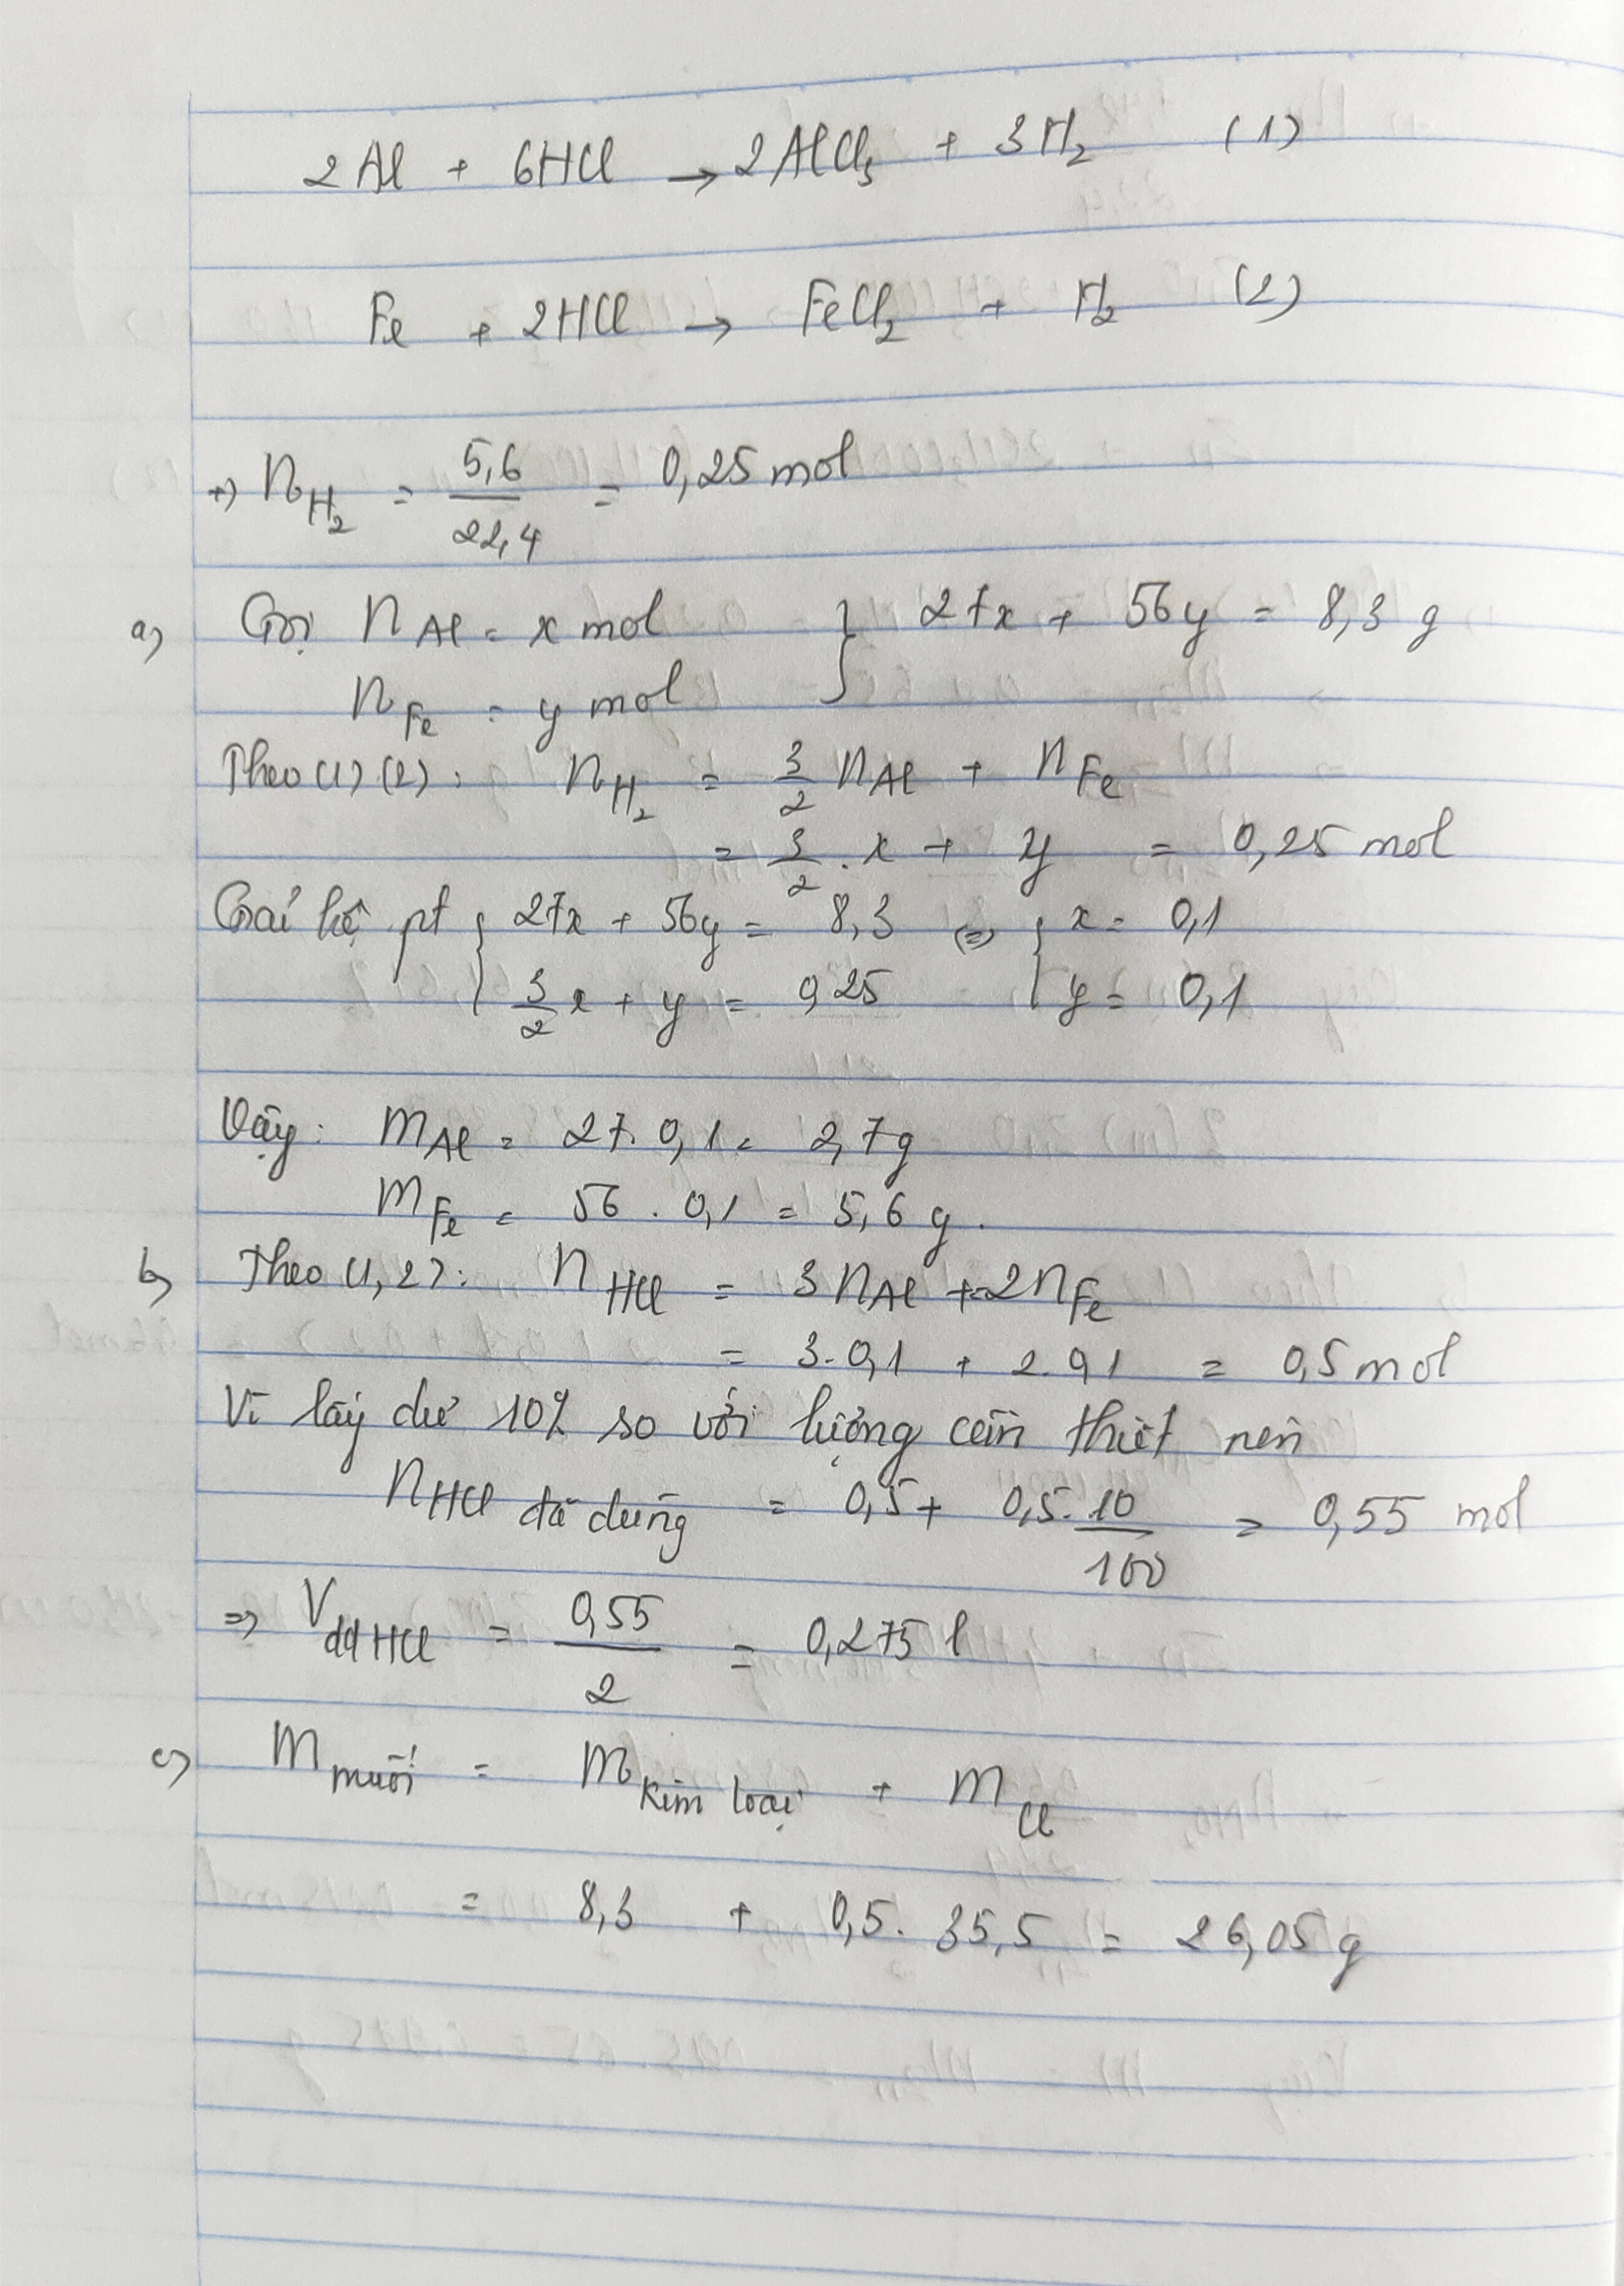 2Al + 6HCl → 2AlCl₃ + 3H₂ (1)
Fe + 2HCl → FeCl₂ + H₂ (2)
+) n_H₂ = 5,6/22,4 = 0,25 mol
a) Gọi n_Al = x mol } 27x + 56y = 8,3 g
n_Fe = y mol
Theo (1) (2): n_H₂ = 3/2 n_Al + n_Fe
= 3/2 . x + y = 0,25 mol
Giải hệ pt { 27x + 56y = 8,3 (=) { x = 0,1
3/2 x + y = 0,25 y = 0,1
Vậy: m_Al = 27. 0,1 = 2,7g
m_Fe = 56 . 0,1 = 5,6 g.
b) Theo (1,2): n_HCl = 3 n_Al + 2n_Fe
= 3. 0,1 + 2. 0,1 = 0,5 mol
Vì lấy dư 10% so với lượng cần thiết nên
n_HCl đã dùng = 0,5 + 0,5. 10/100 = 0,55 mol
=> V_dd HCl = 0,55/2 = 0,275 l
c) m_muối = m_kim loại + m_Cl
= 8,3 + 0,5. 35,5 = 26,05 g